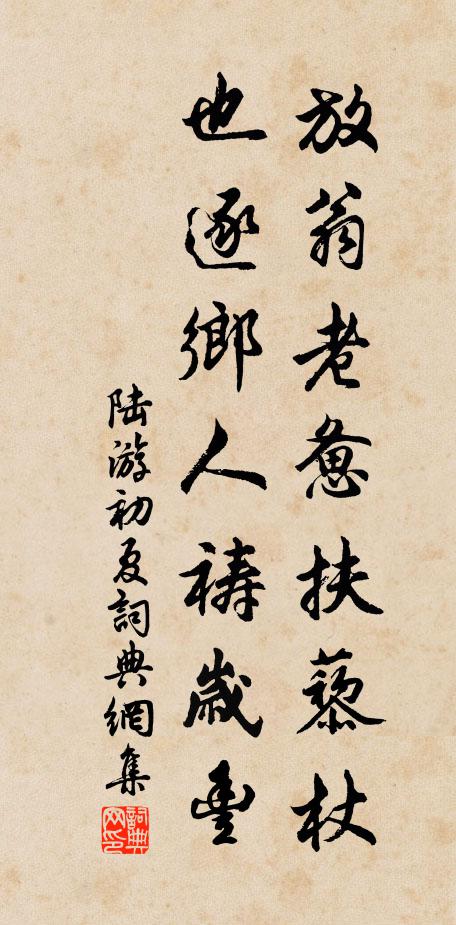 放翁老惫扶藜杖
也逐鄉人祷歲豐
陆游初夏詞典網集
詞典网印